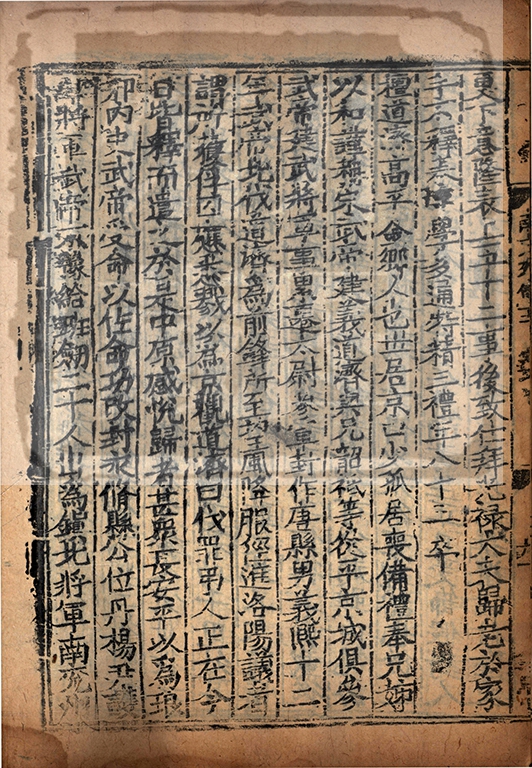 更下意隆表上五十二事後致仕拜光禄大夫歸老於家
手不釋卷博學多通特精三禮年八十三卒
檀道濟高平金鄉人也世居京口少孤居喪備禮奉兄姊
以和謹稱宋武帝建義道濟與兄韶祗等從平京城俱參
武帝建武將軍事累遷太尉參軍封作唐縣男義熙十二
年武帝北伐道濟為前鋒所至望風降服徑進洛陽議者
謂所獲俘囚應悉戮以為京觀道濟曰伐罪弔人正在今
日皆釋而遣之於是中原感悅歸者甚衆長安平以為琅
邪內史武帝受命以佐命功改封永脩縣公位丹楊尹護
軍將軍武帝不豫給班劒二十人出為鎮北將軍南兗州